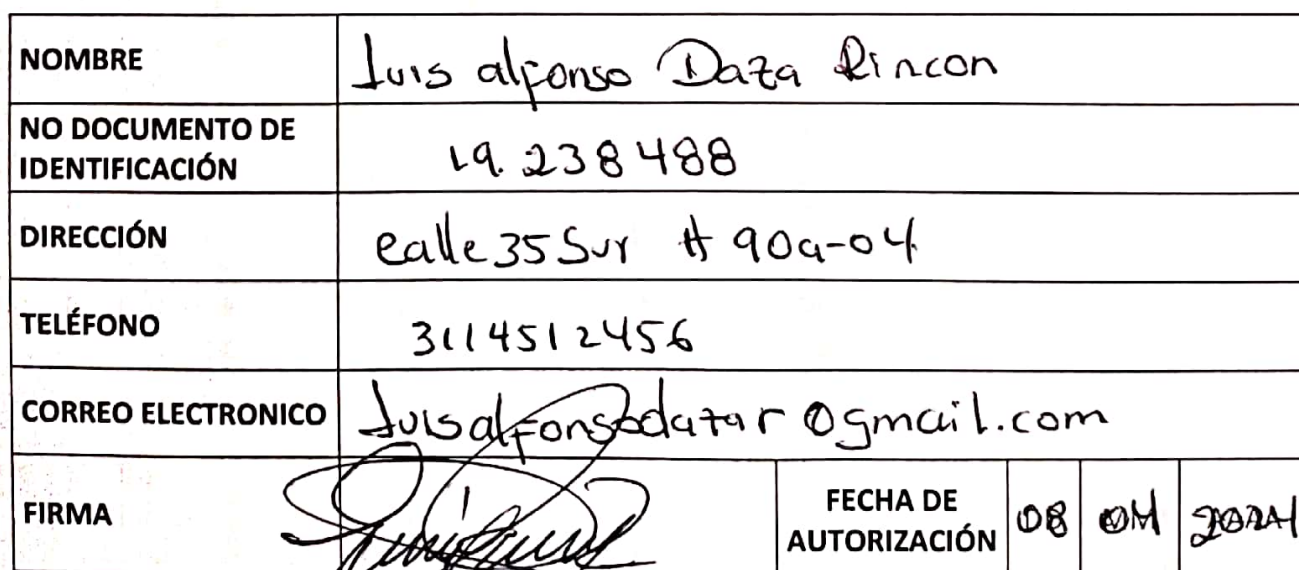 NOMBRE Luis alfonso Daza Rincon
NO DOCUMENTO DE
IDENTIFICACIÓN 19.238488
DIRECCIÓN calle 35 Sur # 90a-04
TELÉFONO 3114512456
CORREO ELECTRONICO luisalfonsodazar@gmail.com
FIRMA
FECHA DE
AUTORIZACIÓN 08 04 2024